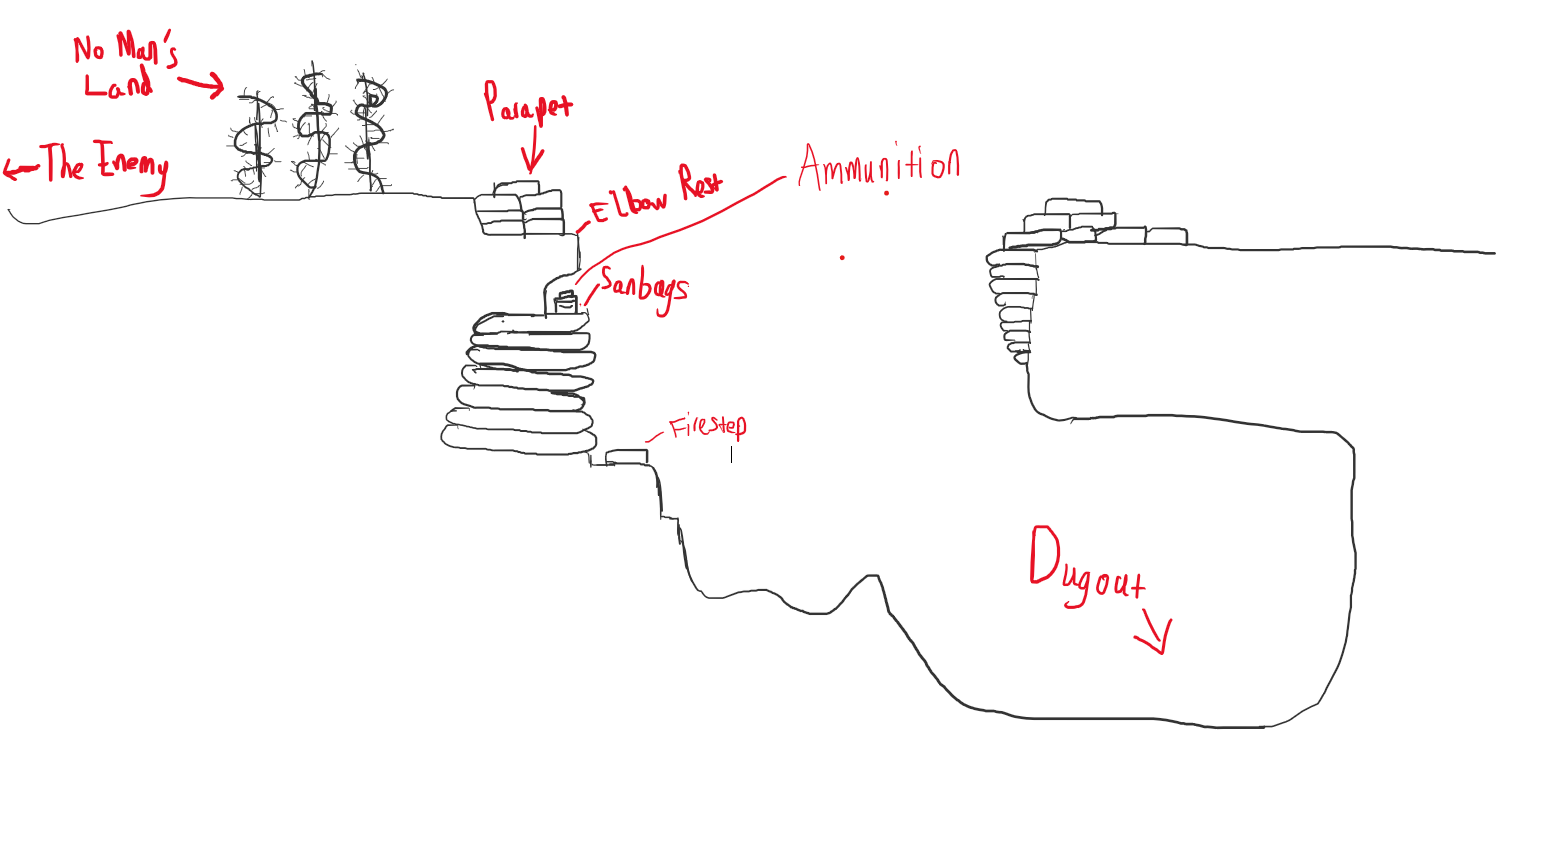 No Man's
Land
The Enemy
Parapet
Elbow Rest
Ammunition
Sanbags
Firestep
Dugout